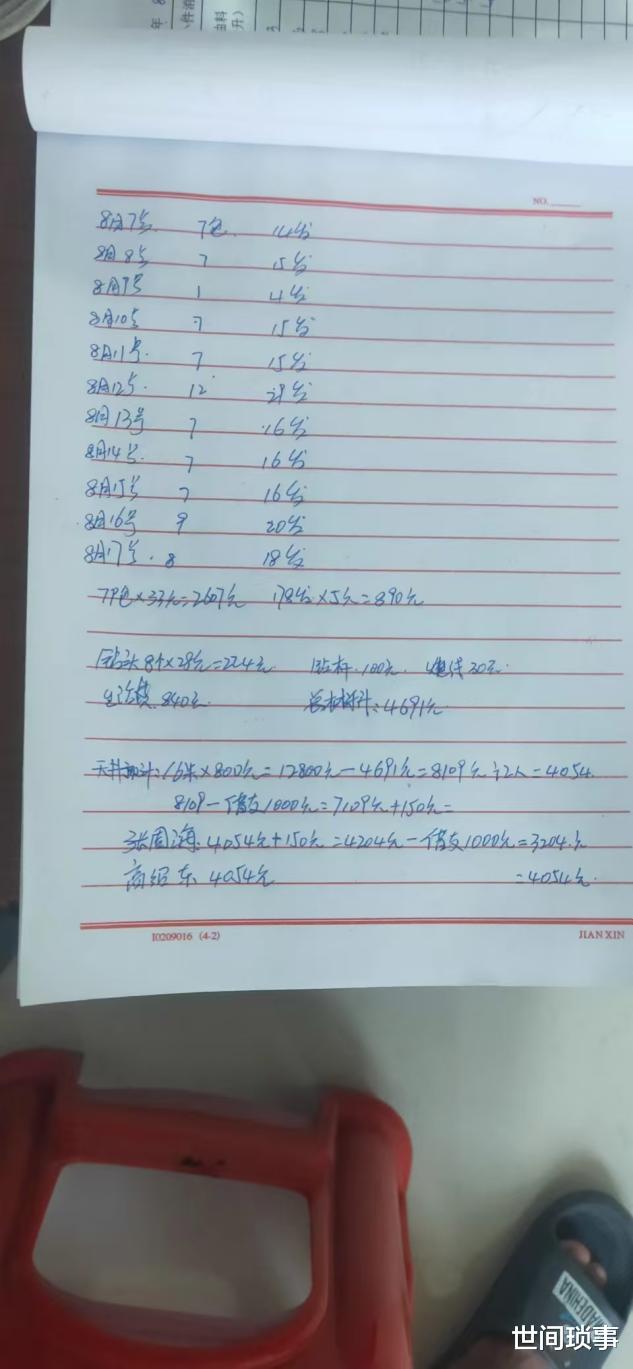 年 8
件消
油料
升)
NO.
8月7号 7包. 14台
8月8号 7 15台
8月9号 1 4台
8月10号 7 15台
8月11号. 7 15台
8月12号. 12 台
8月13号 7 16台
8月14号. 7 16台
8月15号 7 16台
8月16号 9 20台
8月17号. 8 18台
79包×33元=2607元 178台×5元=890元
钻头8个×28元=224元 钻杆.100元. 线30元.
生活费840元. 总材料:4691元
天井:16米×800元=12800元-4691元=8109元÷2人=4054.
8109-借支1000元=7109元+150元=
张周海:4054元+150元=4204元-借支1000元=3204.元
高绍东 4054元 =4054元.
10209016 (4-2) JIAN XIN
CHINA
世间琐事